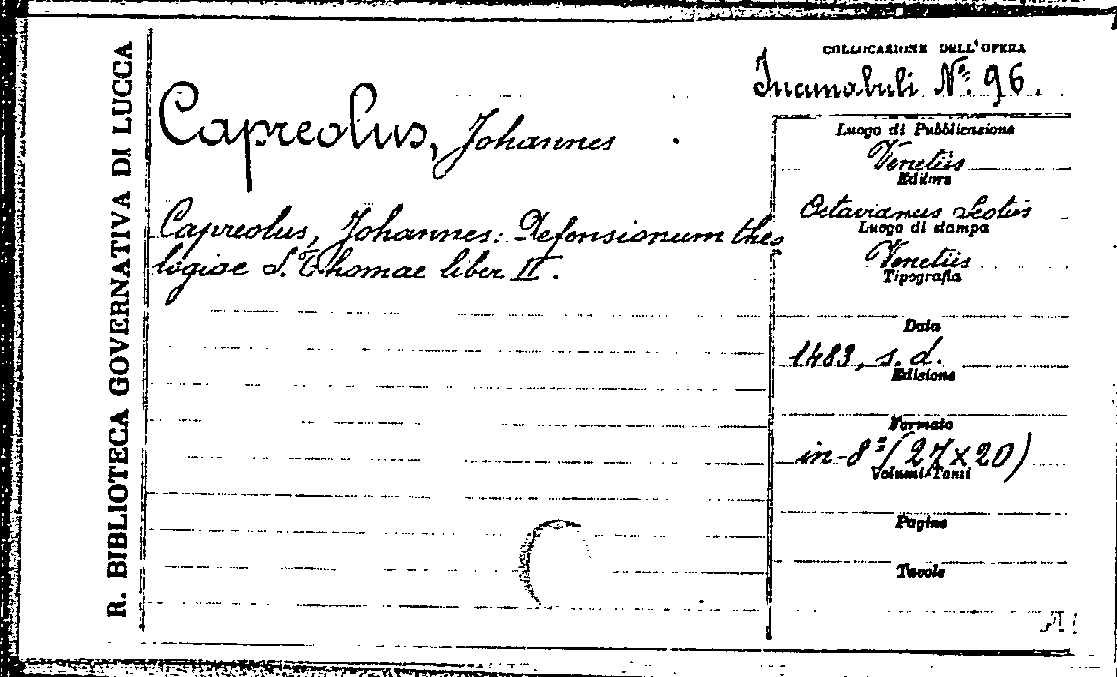 R. BIBLIOTECA GOVERNATIVA DI LUCCA
COLLOCAZIONE DELL'OPERA
Incunabuli N.º 96.
Capreolus, Johannes
Capreolus, Johannes: Defensionum theo
logiae S. Thomae liber II.
Luogo di Pubblicazione
Venetiis
Editore
Octavianus Scotus
Luogo di stampa
Venetiis
Tipografia
Data
1483, s. d.
Edizione
Formato
in-8º (27 x 20)
Volumi-Tomi
Pagine
Tavole